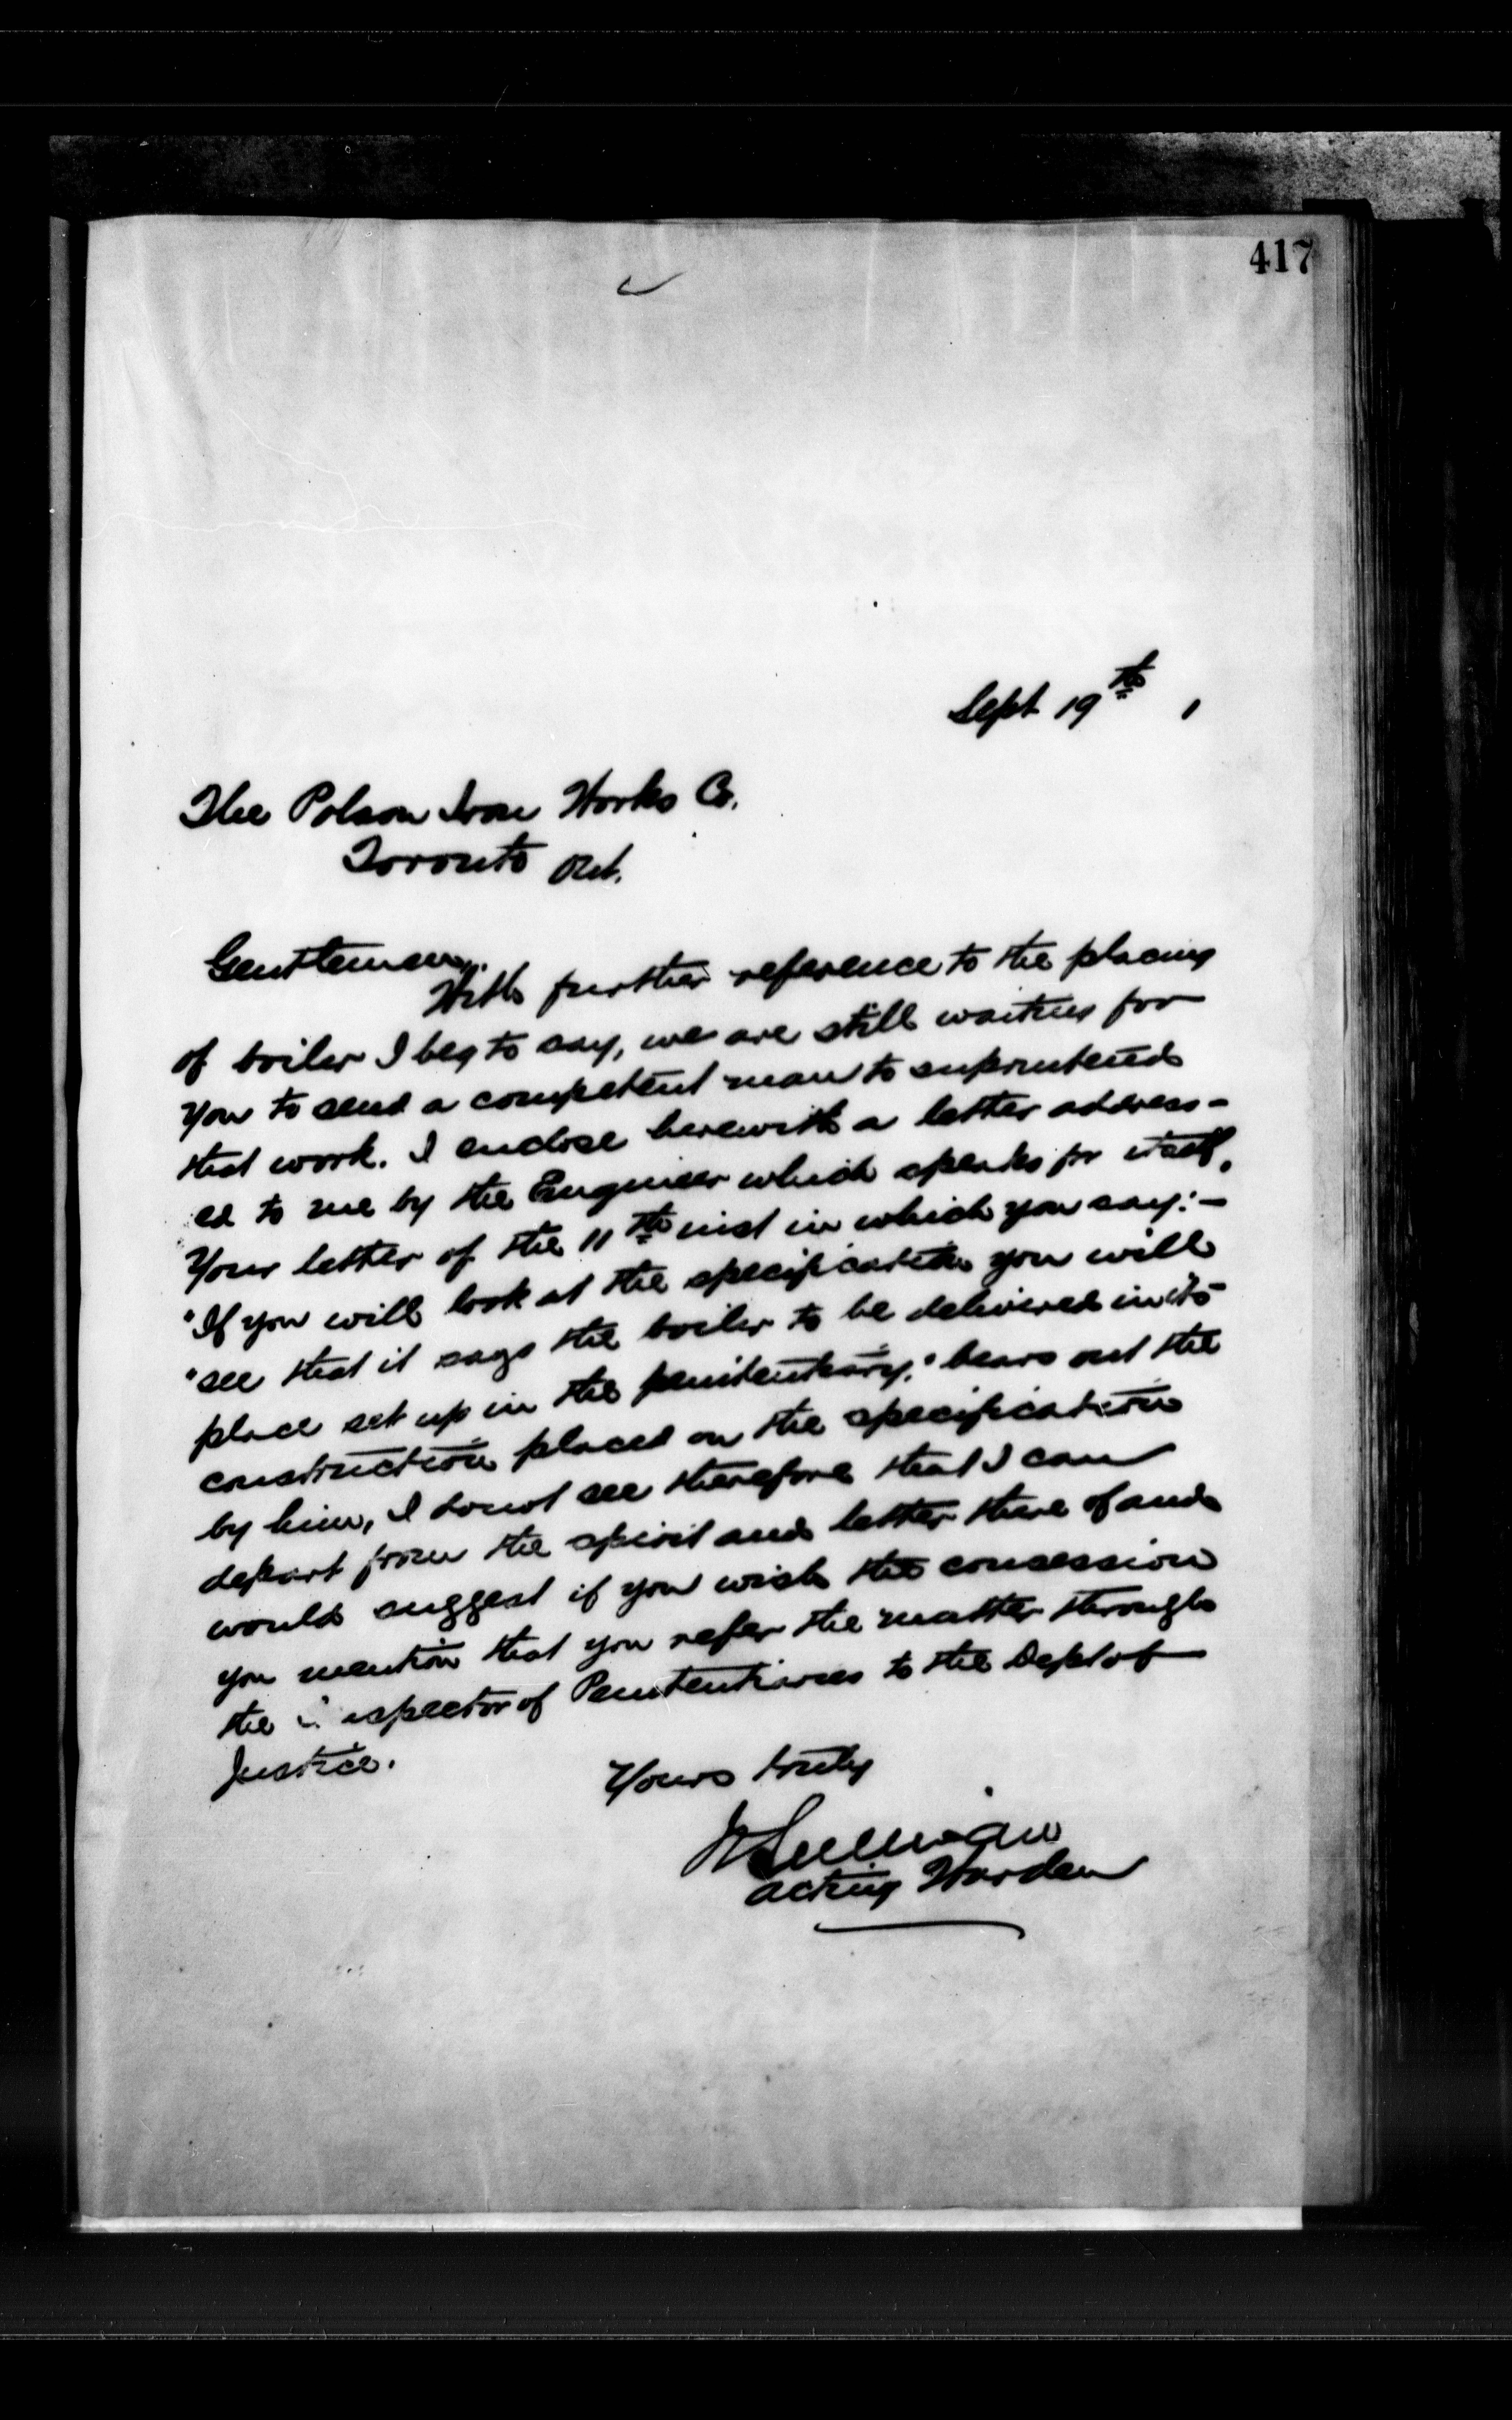 417
Sept 19th 1
The Polson Iron Works Co.
Toronto Ont.
Gentlemen,
With further reference to the placing
of boiler I beg to say, we are still waiting for
you to send a competent man to superintend
that work. I enclose herewith a letter address-
ed to me by the Engineer which speaks for itself.
Your letter of the 11th inst in which you say:-
"If you will look at the specification you will
"see that it says the boiler to be delivered in its
place set up in the penitentiary," bears out the
construction placed on the specification
by him, I do not see therefore that I can
depart from the spirit and letter there of and
would suggest if you wish the consession
you mention that you refer the matter through
the Inspector of Penitentiaries to the Dept of
Justice.
Yours truly
Acting Warden